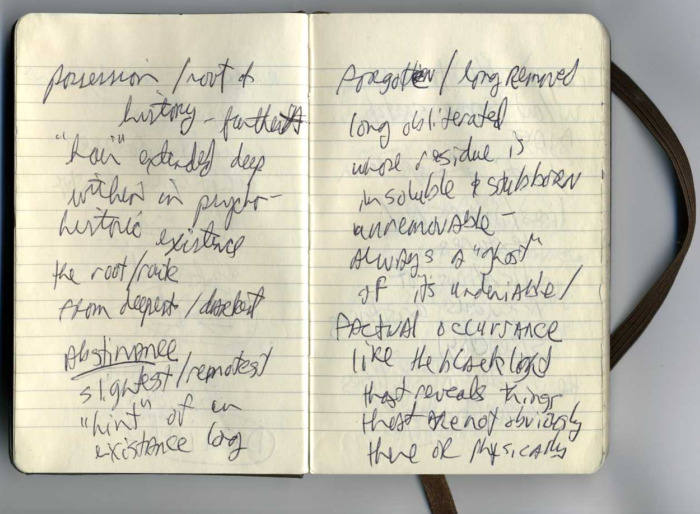 possession / root of
history - furthest
"hair" extended deep
within in psycho-
historic existence
the root/
from deepest / darkest
Abstinance
slightest/remotest
"hint" of an
existence long
forgotten / long removed
long obliterated
whose residue is
insoluble & stubborn
unremovable -
Always a "ghost"
of its undeniable /
FACTUAL occurrance
like the black
that reveals things
that are not obviously
there or physically